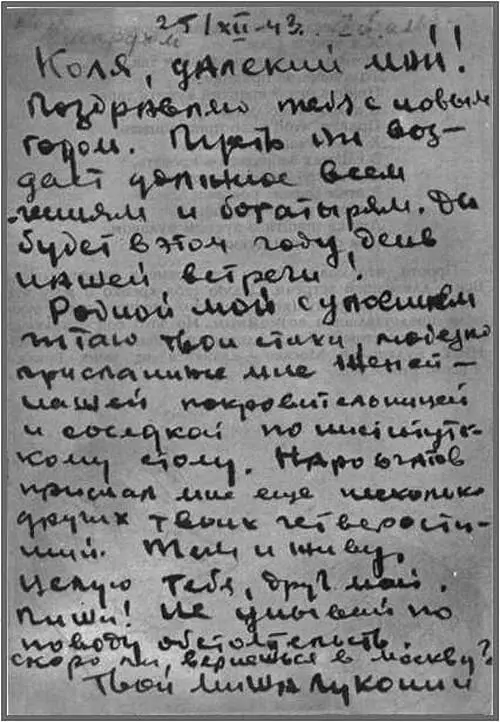 25/XII-43.
Коля, далекий мой!
Поздравляю тебя с новым
годом. Пусть он воз-
даст должное всем
гениям и богатырям. Да
будет в этом году день
нашей встречи!
Родной мой с упоением
читаю твои стихи, любезно
присланные мне Женей —
нашей покровительницей
и соседкой по институтс-
кому столу. Наровчатов
прислал мне еще несколько
других твоих четверости-
ший. Тем и живу.
Целую тебя, друг мой.
Пиши! Не унывай по
поводу обстоятельств.
Скоро ли вернешься в Москву?
Твой Миша Луконин